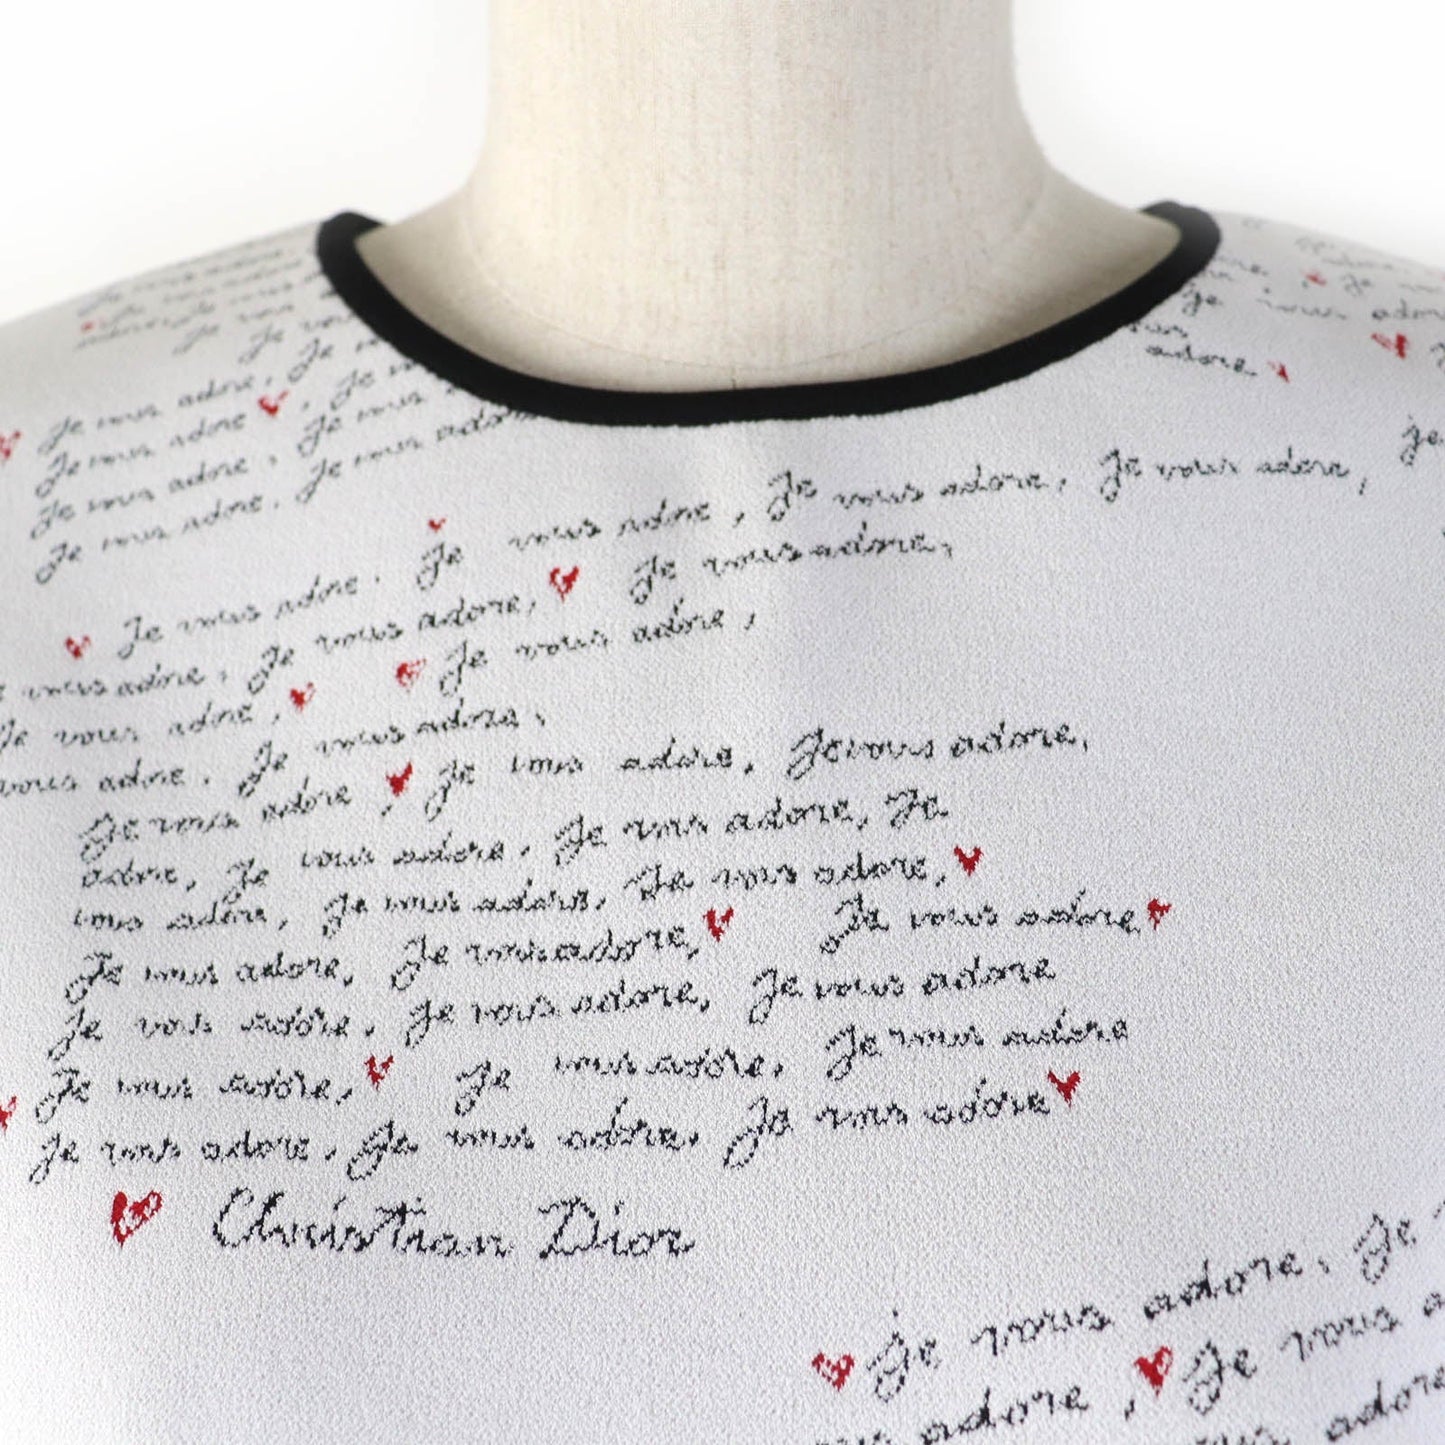 Je vous adore, Je
Je vous adore, Je vous
Je vous adore, Je vous
Je vous adore, Je vous adore
Je vous adore, Je vous adore
adore
Je vous adore, Je vous adore, Je vous adore, Je vous adore,
vous adore, Je vous adore, Je vous adore,
Je vous adore, Je vous adore,
vous adore, Je vous adore,
Je vous adore, Je vous adore, Je vous adore,
adore, Je vous adore, Je vous adore, Je
vous adore, Je vous adore, Je vous adore,
Je vous adore, Je vous adore, Je vous adore
Je vous adore, Je vous adore, Je vous adore
Je vous adore, Je vous adore, Je vous adore
Je vous adore, Je vous adore, Je vous adore
Christian Dior
je vous adore, Je
adore, Je vous
adore